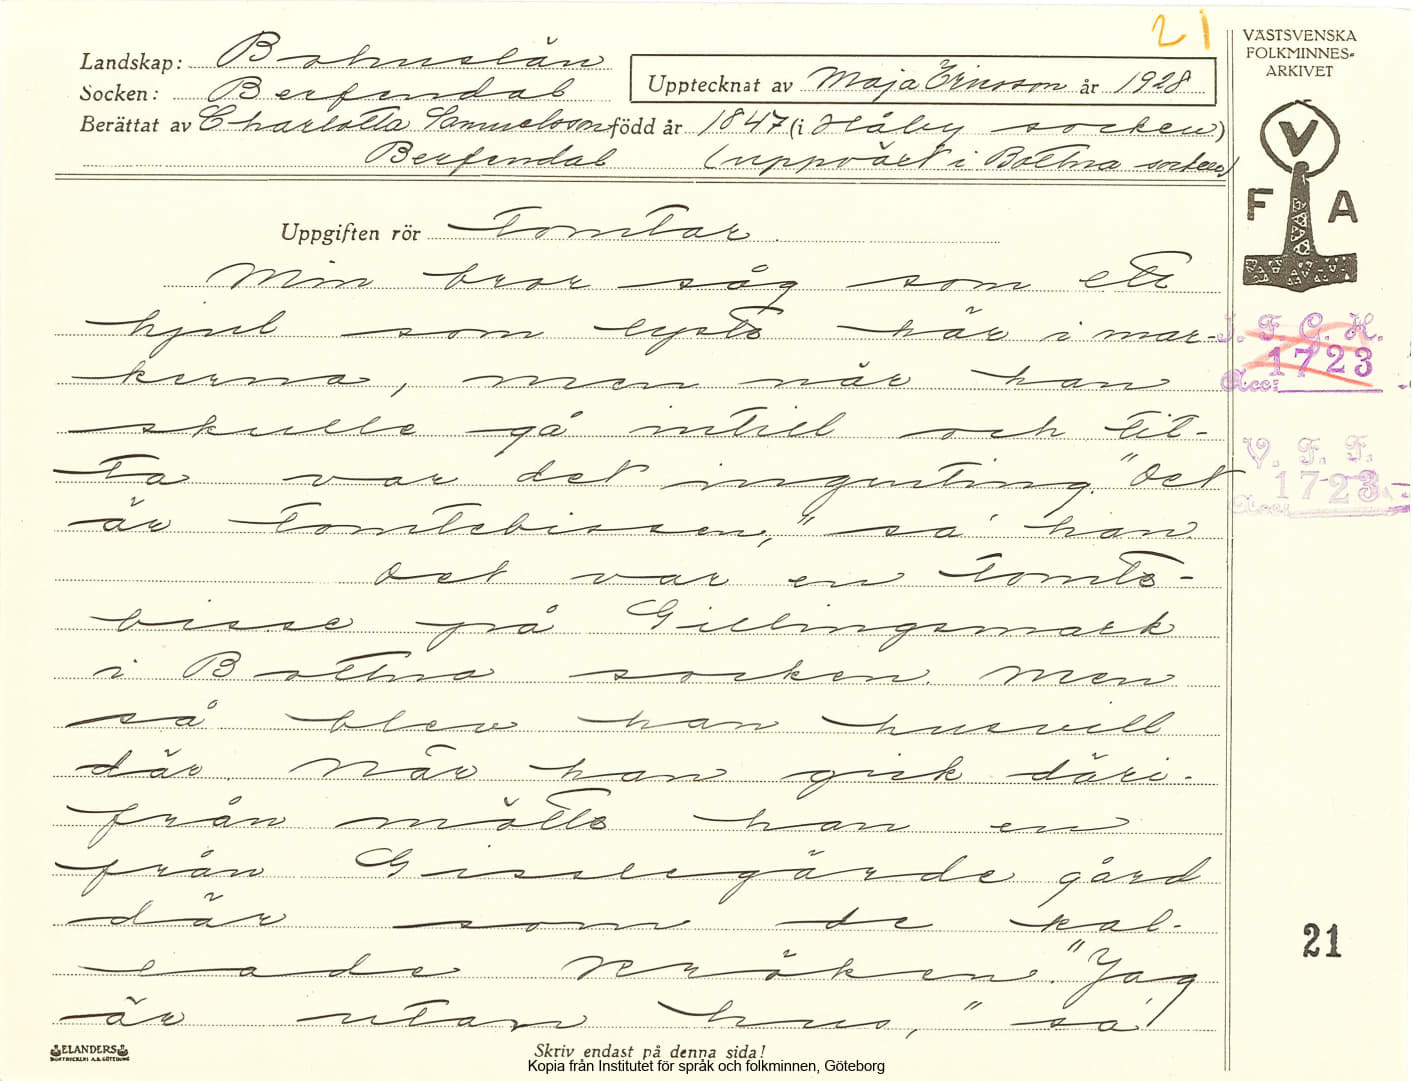 21
VÄSTSVENSKA
FOLKMINNES-
ARKIVET
Landskap: Bohuslän
Socken: Berfendal
Upptecknat av Maja Ericsson år 1928
Berättat av Charlotta Samuelsson född år 1847 (i Håby socken)
Berfendal (uppväxt i Bottna socken)
V
F A
Uppgiften rör Tomtar
Min bror såg som ett
hjul som lyste här i mar-
kerna, men när han
skulle gå intill och tit-
ta var det ingenting. "Det
är tomtebissen," sa' han.
Det var en tomte-
bisse på Gillingsmark
i Bottna socken. Men
så blev han husvill
där. När han gick däri-
från mötte han en
från Gisslegärde gård
där som de kal-
lade Kröken. "Jag
är utan hus," sa'
I. F. G. H.
1723
Acc:
V. F. F.
1723
Acc:
21
ELANDERS
BOKTRYCKERI A.B. GÖTEBORG
Skriv endast på denna sida!
Kopia från Institutet för språk och folkminnen, Göteborg